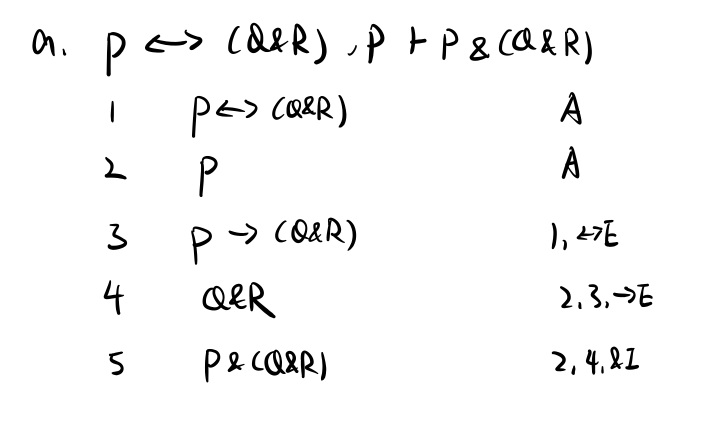 a. P ↔ (Q&R), P ⊢ P & (Q&R)
1 P↔(Q&R) A
2 P A
3 P → (Q&R) 1, ↔E
4 Q&R 2, 3, →E
5 P & (Q&R) 2, 4, &I